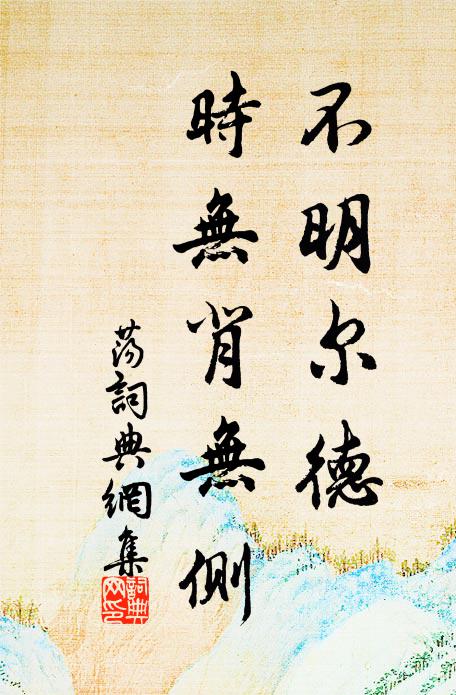 不明尔德
時無背無側
蕩詞典網集
詞典
网印